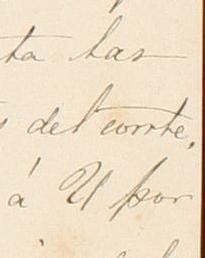 ta las
s del corrte.
á U por